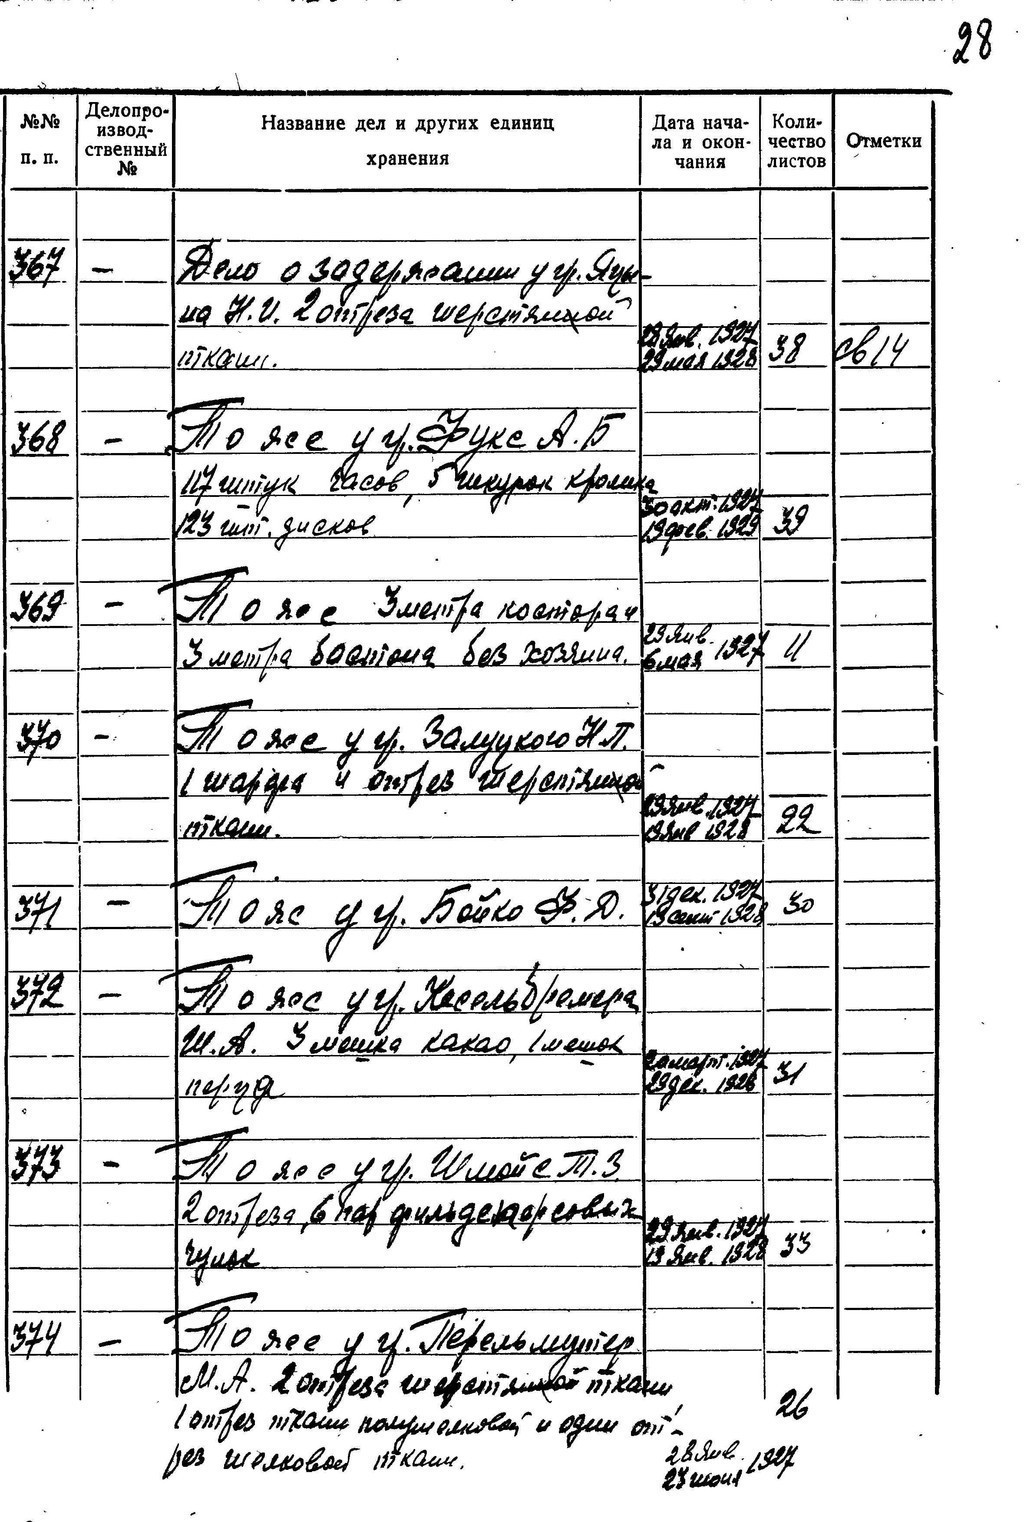 28
№№ п. п.
Делопро-
извод-
ственный
№
Название дел и других единиц
хранения
Дата нача-
ла и окон-
чания
Коли-
чество
листов
Отметки
367 — Дело о задержании у гр. Яцы-
на Н.И. 2 отреза шерстянной
28 янв. 1927
ткани. 29 мая 1928 38 св 14
368 — То же у гр. Фукс А.Б
117 штук часов, 5 шкурок кролика
30 окт. 1927
123 шт. дисков 19 фев. 1929 39
369 — То же 3 метра костора и
29 янв.
3 метра бостона без хозяина. 6 мая 1927 11
370 — То же у гр. Залуцкого Н.П.
1 шарфа и отрез шерстянной
29 янв. 1927
ткани. 19 янв 1928 22
31 дек. 1927
371 — То же у гр. Бойко Ф.Д. 13 сент 1928 30
372 — То же у гр. Кесельбремера
Ш.А. 3 мешка какао, 1 мешок
2 март. 1927
перца 29 дек. 1928 31
373 — То же у гр. Шмойс Т.З.
2 отреза, 6 пар фильдекорсовых
29 янв. 1927
чулок 19 янв. 1928 33
374 — То же у гр. Перельмутер
М.А. 2 отреза шерстянной ткани,
26
1 отрез ткани полушелковой и один от-
28 янв.
рез шелковой ткани. 23 июня 1927